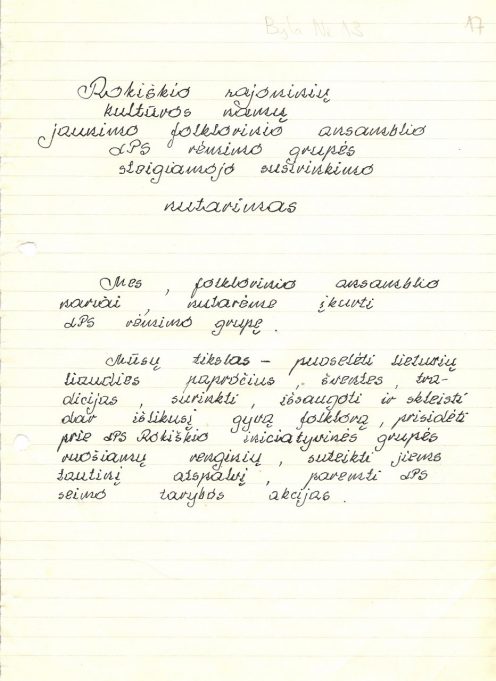 Byla Nr 13
17
Rokiškio rajoninių
kultūros namų
jaunimo folklorinio ansamblio
LPS rėmimo grupės
steigiamojo susirinkimo
nutarimas
Mes, folklorinio ansamblio
nariai, nutarėme įkurti
LPS rėmimo grupę.
Mūsų tikslas – puoselėti lietuvių
liaudies papročius, šventes, tra-
dicijas, surinkti, išsaugoti ir skleisti
dar išlikusį, gyvą folklorą, prisidėti
prie LPS Rokiškio iniciatyvinės grupės
ruošiamų renginių, suteikti jiems
tautinį atspalvį, paremti LPS
seimo tarybos akcijas.